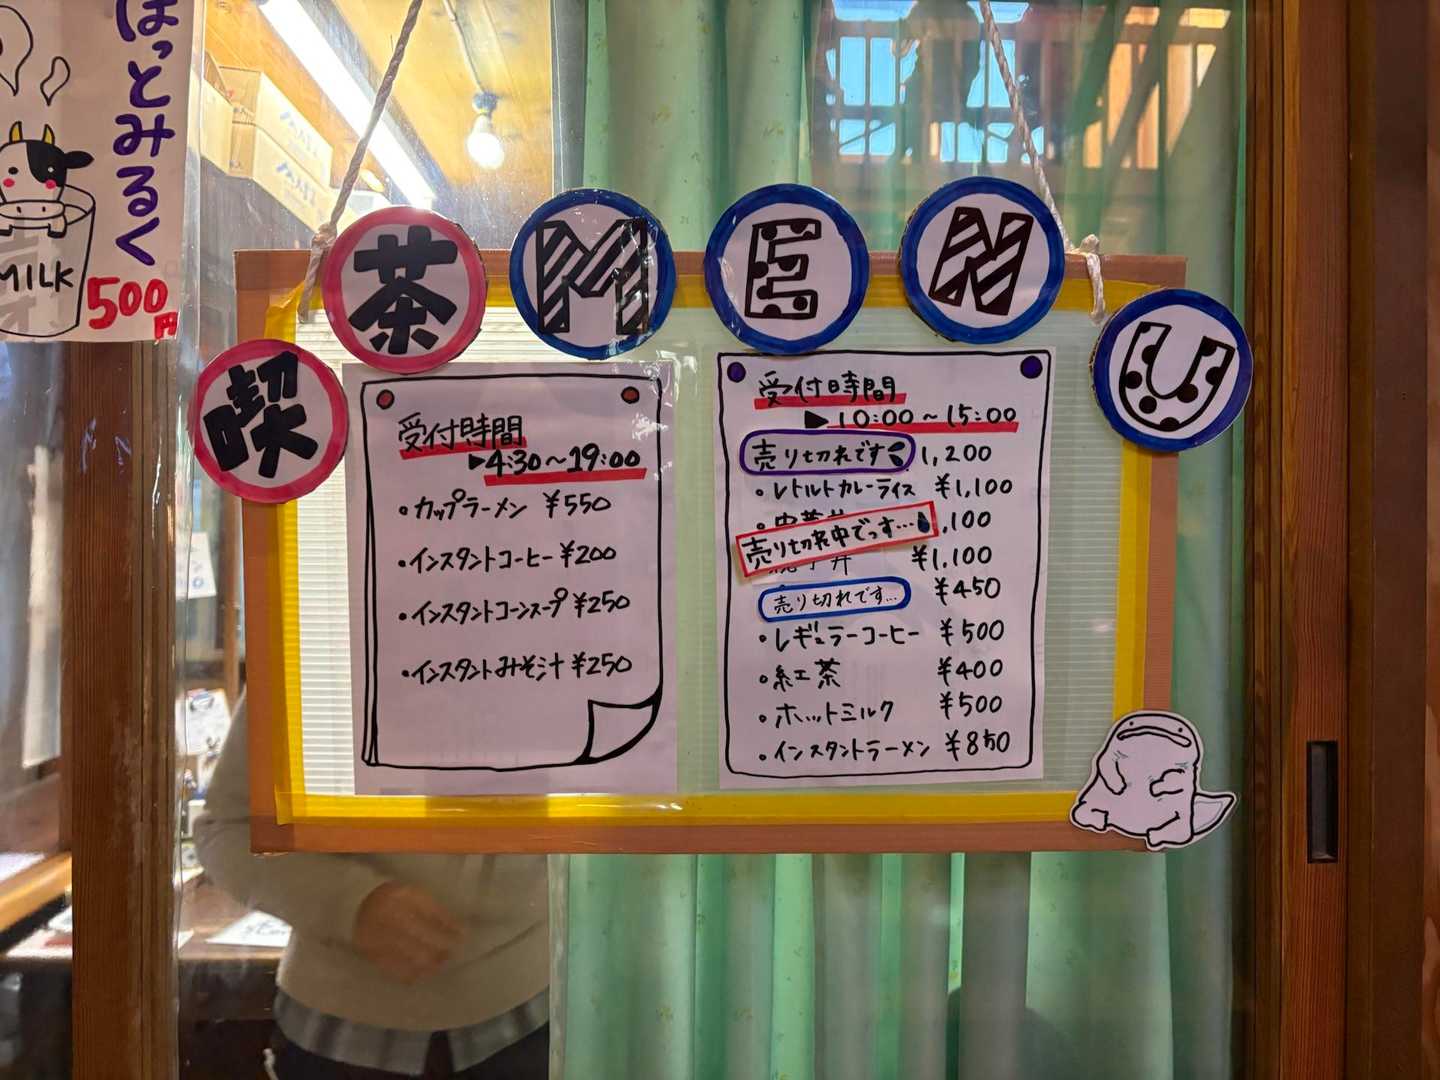 ほっとみるく
MILK
500円
喫茶MENU
受付時間
▶4:30～19:00
・カップラーメン ¥550
・インスタントコーヒー ¥200
・インスタントコーンスープ ¥250
・インスタントみそ汁 ¥250
受付時間
▶10:00～15:00
売り切れです 1,200
・レトルトカレーライス ¥1,100
売り切れ中でっす… ,100
丼 ¥1,100
売り切れです… ¥450
・レギュラーコーヒー ¥500
・紅茶 ¥400
・ホットミルク ¥500
・インスタントラーメン ¥850